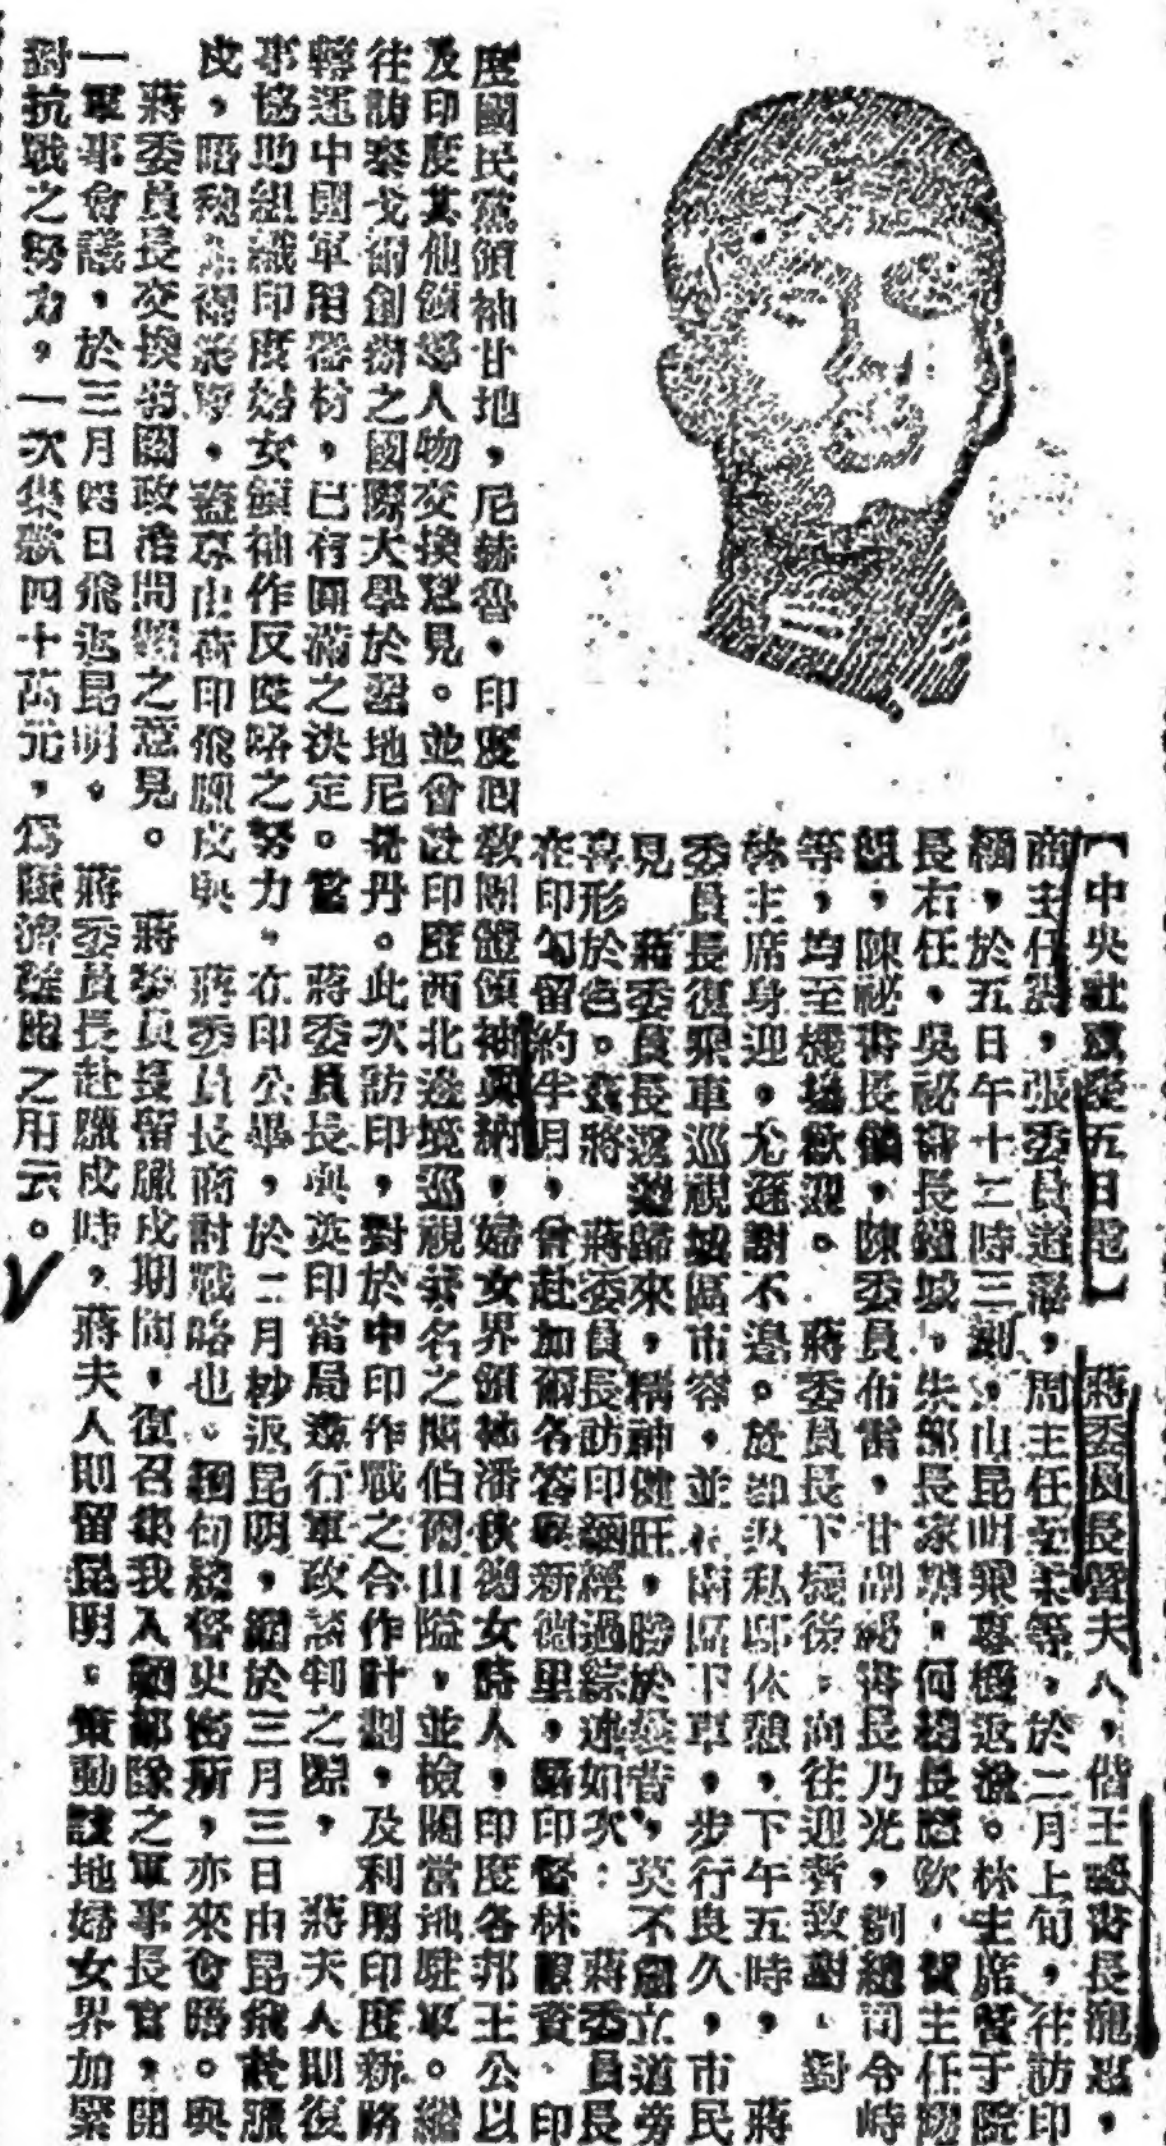 【中央社重慶五日電】　蔣委員長暨夫人，偕王秘書長寵惠，
商主任震，張委員道藩，周主任至柔等，於二月上旬，往訪印
緬，於五日午十二時三刻，山昆明乘專機返渝。林主席暨于院
長右任，吳祕書長鐵城，朱部長家驊，何總長應欽，賀主任耀
組，陳祕書長儀，陳委員布雷，甘副祕書長乃光，劉總司令峙
等，均至機場歡迎。　蔣委員長下機後，向往迎者致謝，對
林主席身迎，尤遜謝不遑。於卽返私邸休憩，下午五時，　蔣
委員長復乘車巡視城區市容，並在兩區下車，步行良久，市民
見　蔣委員長遠遊歸來，精神健旺，勝於疇昔，莫不肅立道旁
喜形於色。茲將　蔣委員長訪印緬經過綜述如次：　蔣委員長
在印勾留約半月，曾赴加爾各答與新德里，晤印督林 資、印
度國民黨領袖甘地，尼赫魯，印度回敎團體領袖真納，婦女界領袖潘秋德女時人，印度各邦王公以
及印度其他領導人物交換意見。並曾赴印度西北邊境巡視著名之開伯爾山隘，並檢閱當地駐軍。繼
往訪泰戈爾創辦之國際大學於聖地尼哥丹。此次訪印，對於中印作戰之合作計劃，及利用印度新路
轉運中國軍用器材，已有圓滿之決定。當　蔣委員長與英印當局進行軍政談判之際，　蔣夫人則復
事協助組織印度婦女領袖作反侵略之努力。在印公畢，於二月杪返昆明，續於三月三日由昆飛赴臘
戍，晤魏 爾將軍，蓋 由荷印飛臘戍與　蔣委員長商討戰略也。緬甸總督史密斯，亦來會晤。與
蔣委員長交換有關政治問題之意見。　蔣委員長留臘戍期間，復召集我入緬部隊之軍事長官，開
一軍事會議，於三月四日飛返昆明。　蔣委員長赴臘戍時，蔣夫人則留昆明。策動該地婦女界加緊
對抗戰之努力，一次集款四十萬元，爲賑濟難胞之用云。